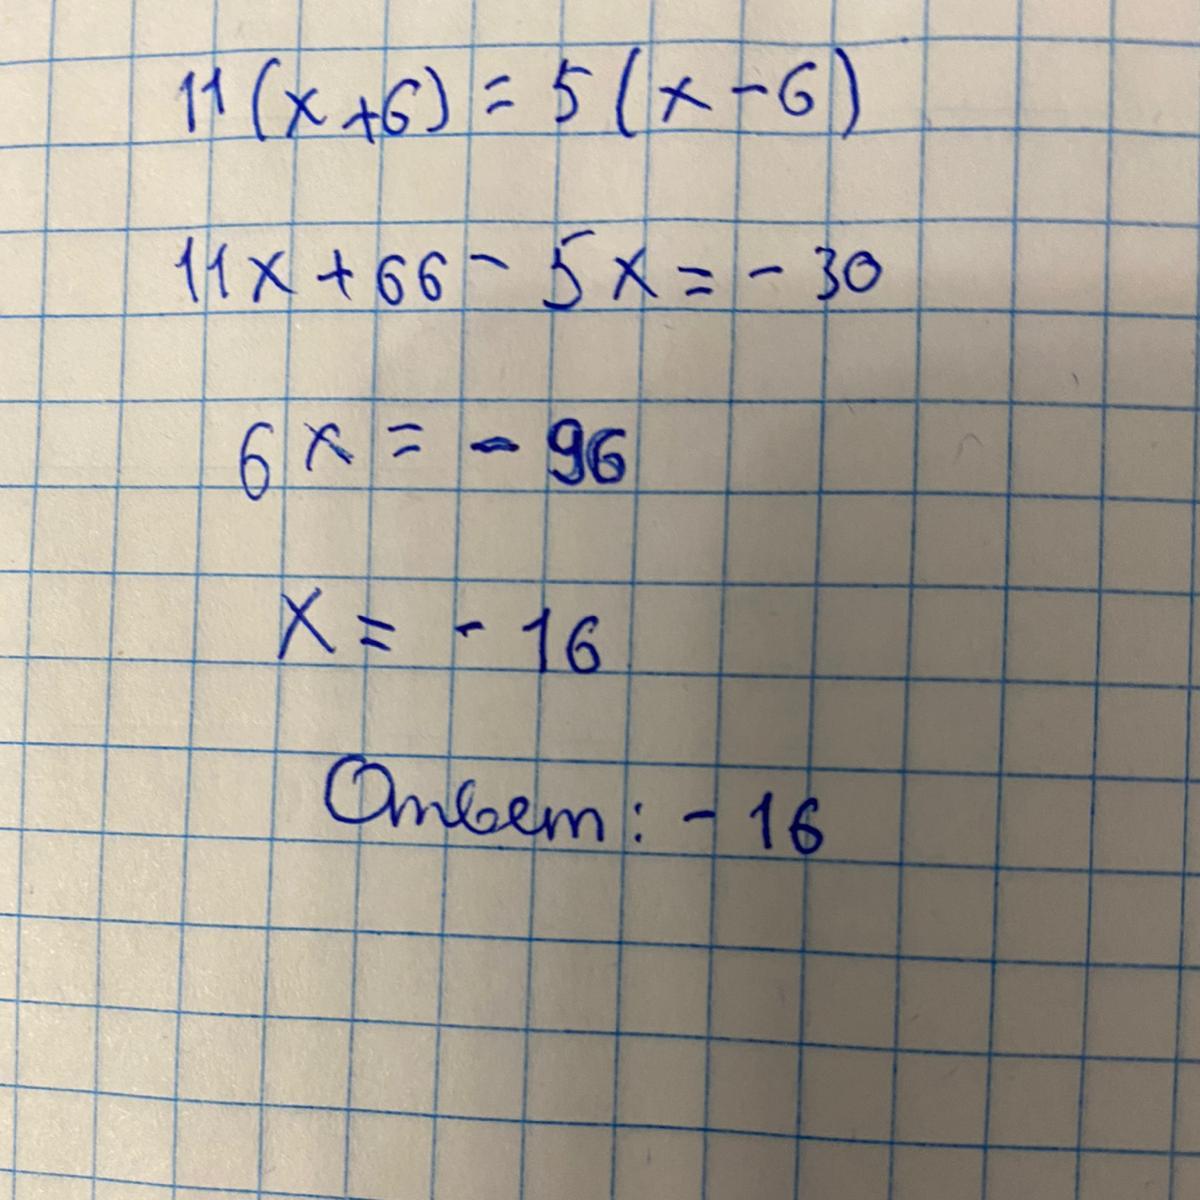 11(x+6) = 5(x-6)
11x + 66 - 5x = - 30
6x = - 96
x = - 16
Ответ: - 16